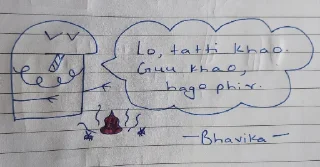 Lo, tatti khao.
Guu khao,
hago phir.
—Bhavika—